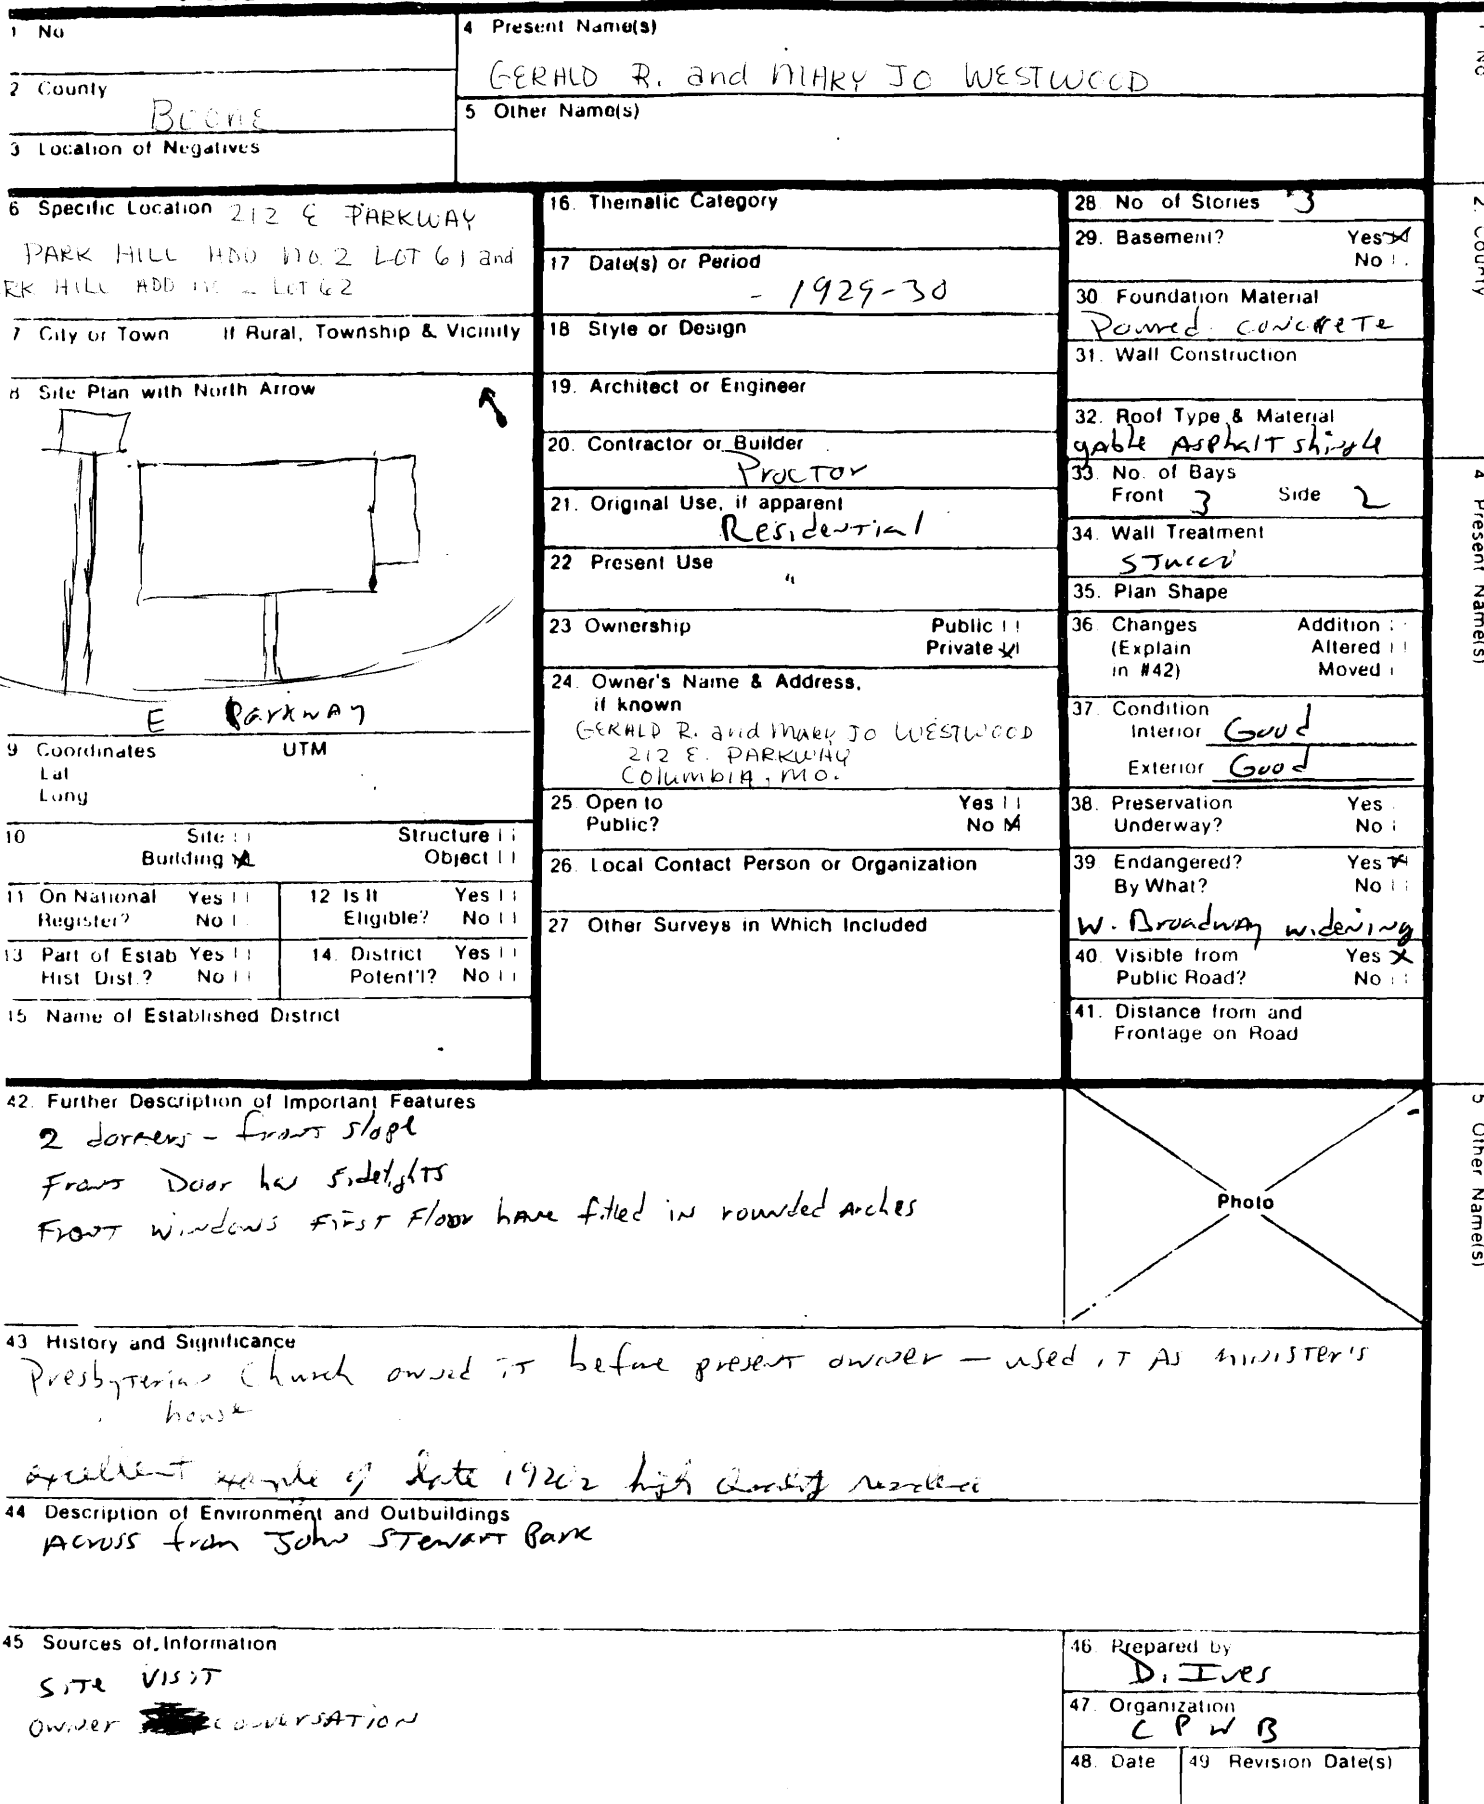 1 No
4 Present Name(s)
GERALD R. and MARY JO WESTWOOD
2 County
BOONE
5 Other Name(s)
3 Location of Negatives
6 Specific Location 212 E PARKWAY
PARK HILL ADD NO. 2 LOT 61 and
RK HILL ADD NO 2 LOT 62
7 City or Town If Rural, Township & Vicinity
8 Site Plan with North Arrow
E PArkwAy
9 Coordinates UTM
Lat
Long
10 Site Structure
Building X Object
11 On National Register? Yes No
12 Is It Eligible? Yes No
13 Part of Estab Hist Dist.? Yes No
14. District Potent'l? Yes No
15 Name of Established District
16. Thematic Category
17 Date(s) or Period
- 1929-30
18 Style or Design
19. Architect or Engineer
20. Contractor or Builder
Proctor
21. Original Use, if apparent
Residential
22 Present Use
"
23 Ownership Public
Private X
24. Owner's Name & Address,
if known
GERALD R. and MARY JO WESTWOOD
212 E. PARKWAY
Columbia, MO.
25. Open to Yes
Public? No X
26. Local Contact Person or Organization
27 Other Surveys in Which Included
28. No of Stories 3
29. Basement? Yes X
No
30 Foundation Material
Poured concrete
31. Wall Construction
32. Roof Type & Material
gable Asphalt shingle
33. No. of Bays
Front 3 Side 2
34. Wall Treatment
Stucco
35. Plan Shape
36. Changes Addition
(Explain Altered
in #42) Moved
37. Condition
Interior Good
Exterior Good
38. Preservation Yes
Underway? No
39 Endangered? Yes X
By What? No
W. Broadway widening
40. Visible from Yes X
Public Road? No
41. Distance from and
Frontage on Road
42. Further Description of Important Features
2 dormers - front slope
Front Door has sidelights
Front windows first floor have filled in rounded arches
Photo
43 History and Significance
Presbyterian Church owned it before present owner - used it as minister's
house
excellent example of late 1920's high quality residence
44 Description of Environment and Outbuildings
Across from John Stewart Park
45 Sources of Information
Site visit
owner conversation
46. Prepared by
D. Ives
47. Organization
C P W B
48. Date 49 Revision Date(s)
1 No
2. County
4 Present Name(s)
5 Other Name(s)